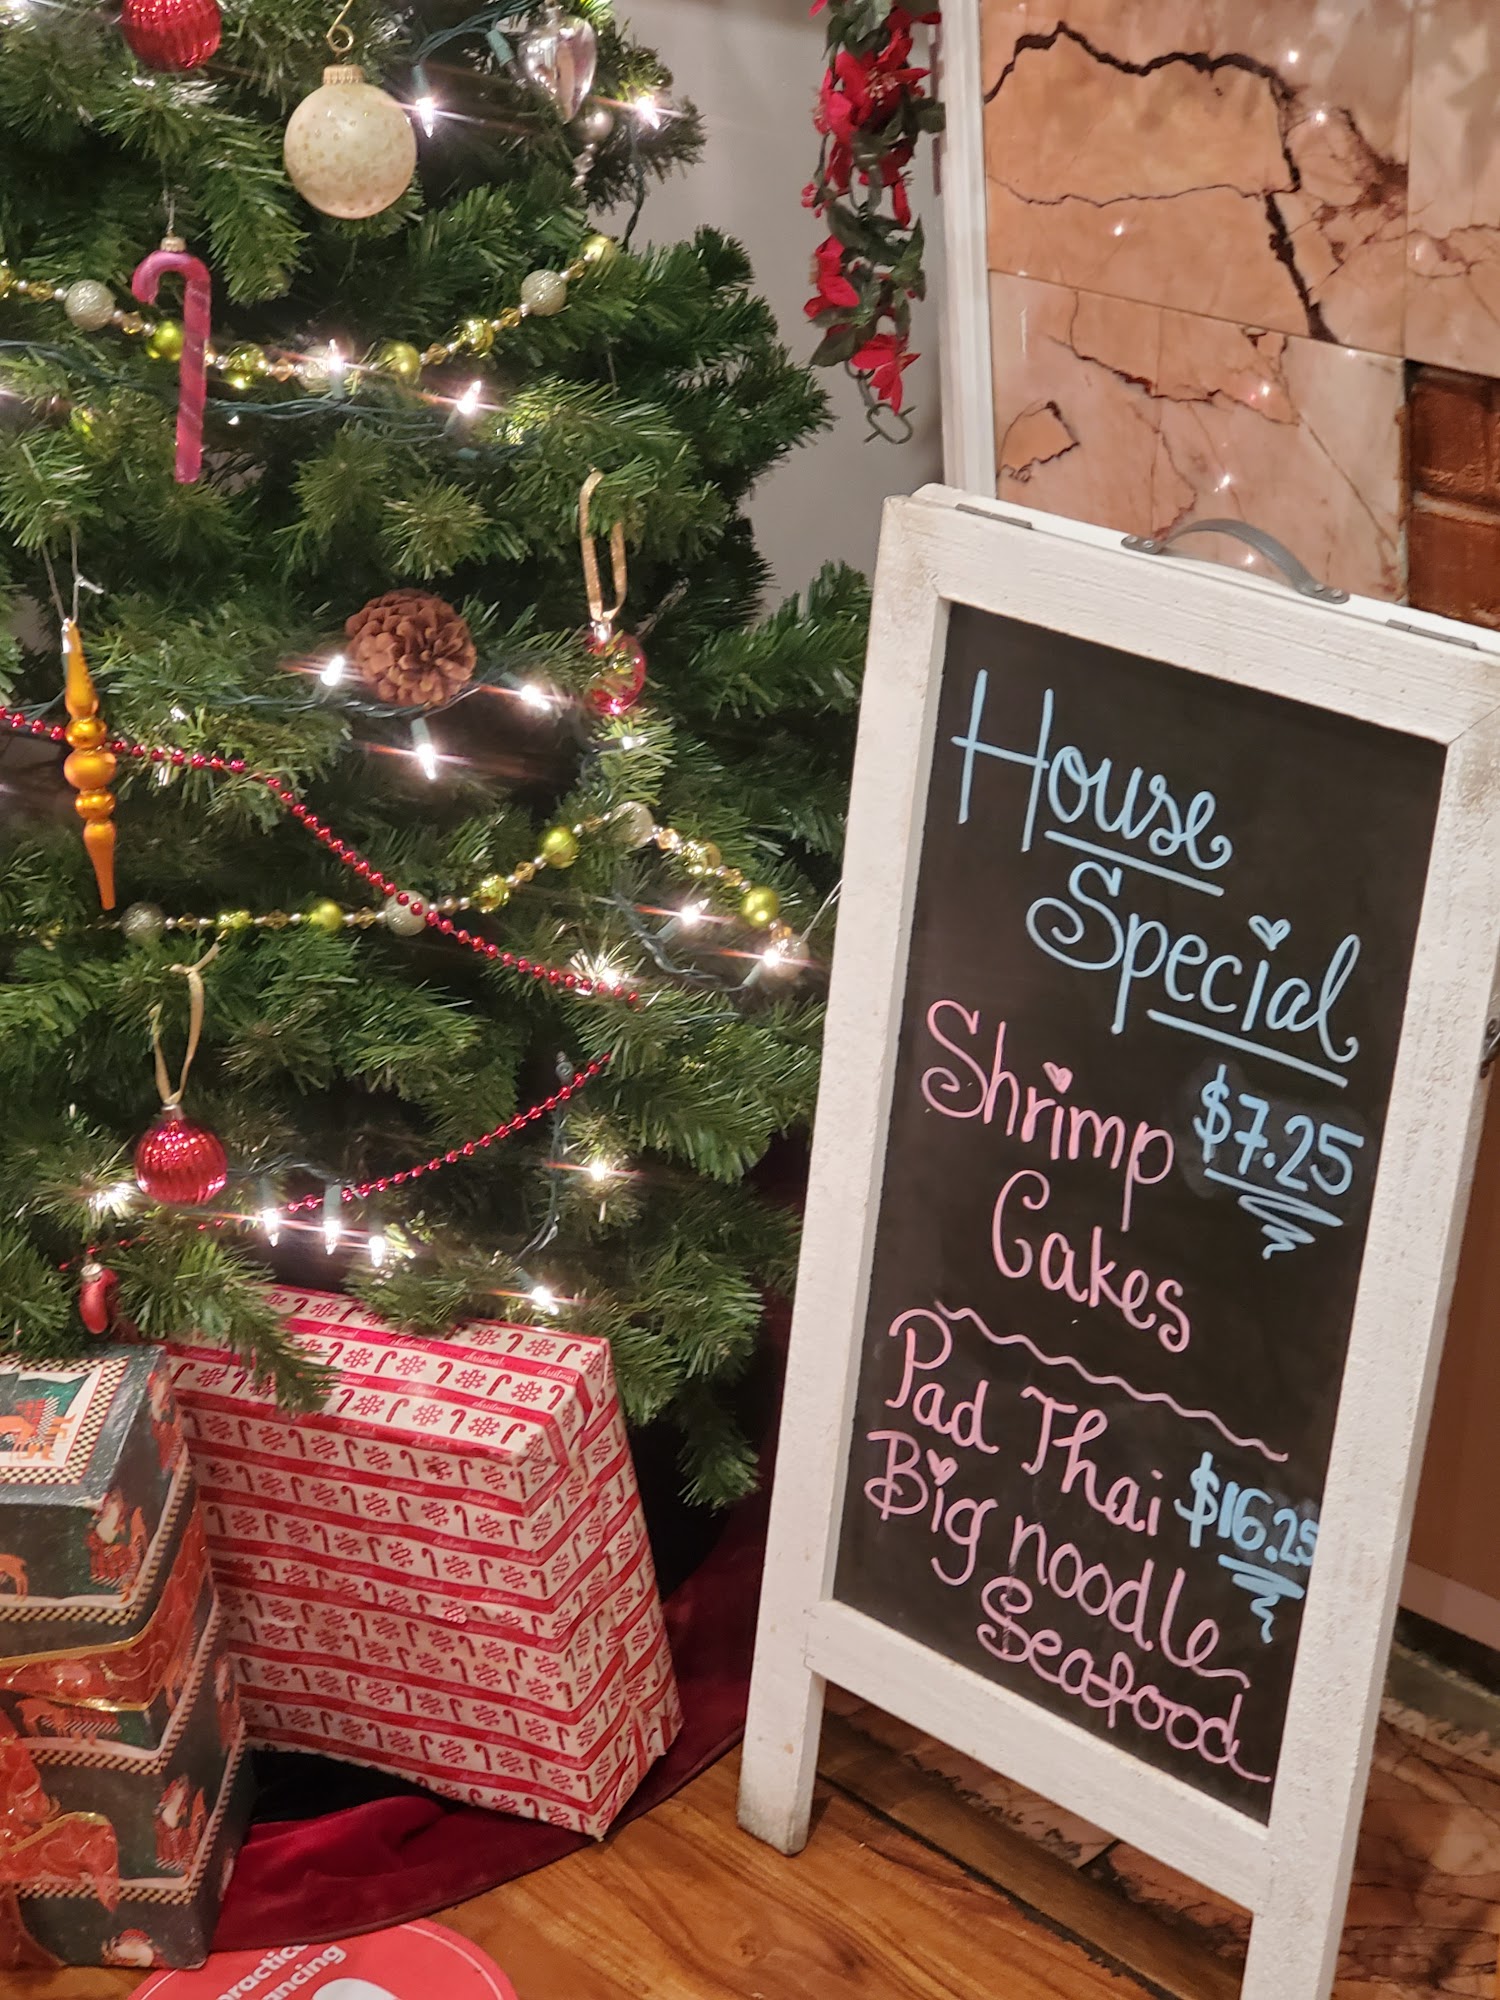 House
Special
Shrimp $7.25
Cakes
Pad Thai $16.25
Big noodle
Seafood
christmas!
christmas!
christmas!